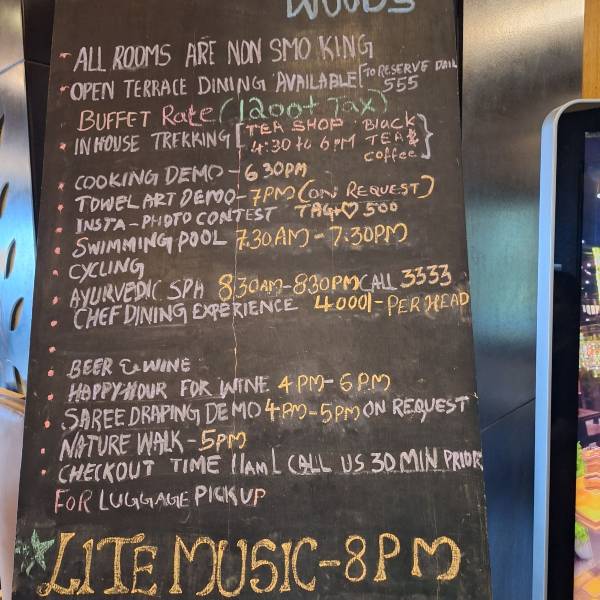 WOODS
ALL ROOMS ARE NON SMOKING
OPEN TERRACE DINING AVAILABLE [TO RESERVE DAIL 555
BUFFET Rate (1200+ TAX)
INHOUSE TREKKING [TEA SHOP Black
4:30 to 6 PM TEA &
coffee}
COOKING DEMO - 6 30PM
TOWEL ART DEMO - 7PM (ON REQUEST)
INSTA - PHOTO CONTEST TAG+♡ 500
SWIMMING POOL 7.30 AM - 7:30PM
CYCLING
AYURVEDIC SPA 8 30AM - 8 30PM CALL 3333
CHEF DINING EXPERIENCE 4000/- PER HEAD
BEER & WINE
HAPPY HOUR FOR WINE 4 PM - 6 PM
SAREE DRAPING DEMO 4PM - 5PM ON REQUEST
NATURE WALK - 5PM
CHECKOUT TIME 11am [ CALL US 30 MIN PRIOR
FOR LUGGAGE PICKUP
LITE MUSIC - 8 PM